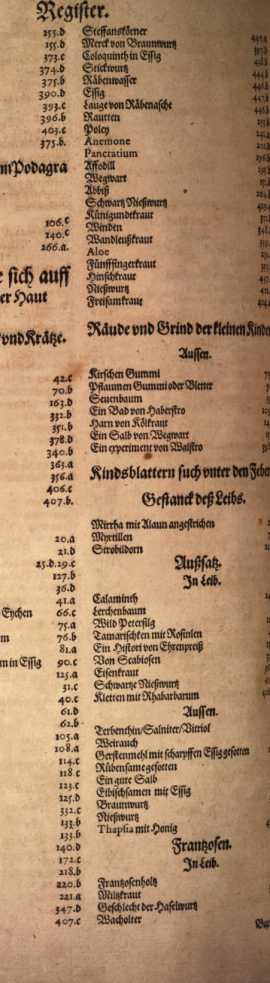 Register.
155.d
155.d
373.c
374.d
375.b
390.d
393.c
396.b
403.c
375.b.
Podagra
106.c
140.c
266.a.
e sich auff
er Haut
vnd Krätze.
42.c
70.b
163.d
332.b
351.b
378.d
340.b
363.a
356.a
406.c
407.b.
20.a
21.d
25.d.29.c
127.b
36.d
41.a
Eychen 66.c
75.a
m 76.b
81.a
m in Essig 90.c
125.a
31.c
40.c
61.d
62.b
105.a
108.a
114.c
118.c
123.c
125.d
332.c
133.b
133.b
140.d
172.c
218.b
220.b
221.a
347.d
407.c
Steffanskörner
Merck von Braunwurtz
Coloquinth in Essig
Stickwurtz
Räbenwasser
Essig
Lauge von Räbenasche
Rautten
Poley
Anemone
Pancratium
Affodill
Wegwart
Abbiß
Schwartz Nießwurtz
Künigundtkraut
Winden
Wandleußkraut
Aloe
Fünfffingerkraut
Hinschkraut
Nießwurtz
Freisamkraut
Räude vnd Grind der kleinen Kinder
Aussen.
Kirschen Gummi
Pflaumen Gummi oder Bletter
Seuenbaum
Ein Bad von Haberstro
Harn von Kölkraut
Ein Salb von Wegwart
Ein experiment von Walstro
Kindsblattern such vnter den
Gestanck deß Leibs.
Mirrha mit Alaun angestrichen
Myrtillen
Strobildorn
Außsatz.
In Leib.
Calaminth
Lerchenbaum
Wild Petersilg
Tamarischken mit Rosinlen
Ein Histori von Ehrenpreiß
Von Scabiosen
Eisenkraut
Schwartze Nießwurtz
Kletten mit Rhabarbarum
Aussen.
Terbenthin/Salniter/Vitriol
Weirauch
Gerstenmehl mit scharpffen Essig gesotten
Rübensame gesotten
Ein gute Salb
Eibischsamen mit Essig
Braunwurtz
Nießwurtz
Thapsia mit Honig
Frantzosen.
In Leib.
Frantzosenholtz
Miltzkraut
Geschlecht der Haselwurtz
Wacholter